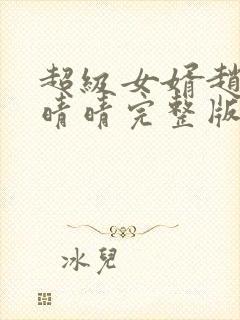 超級女婿趙
晴晴完整版
冰兒